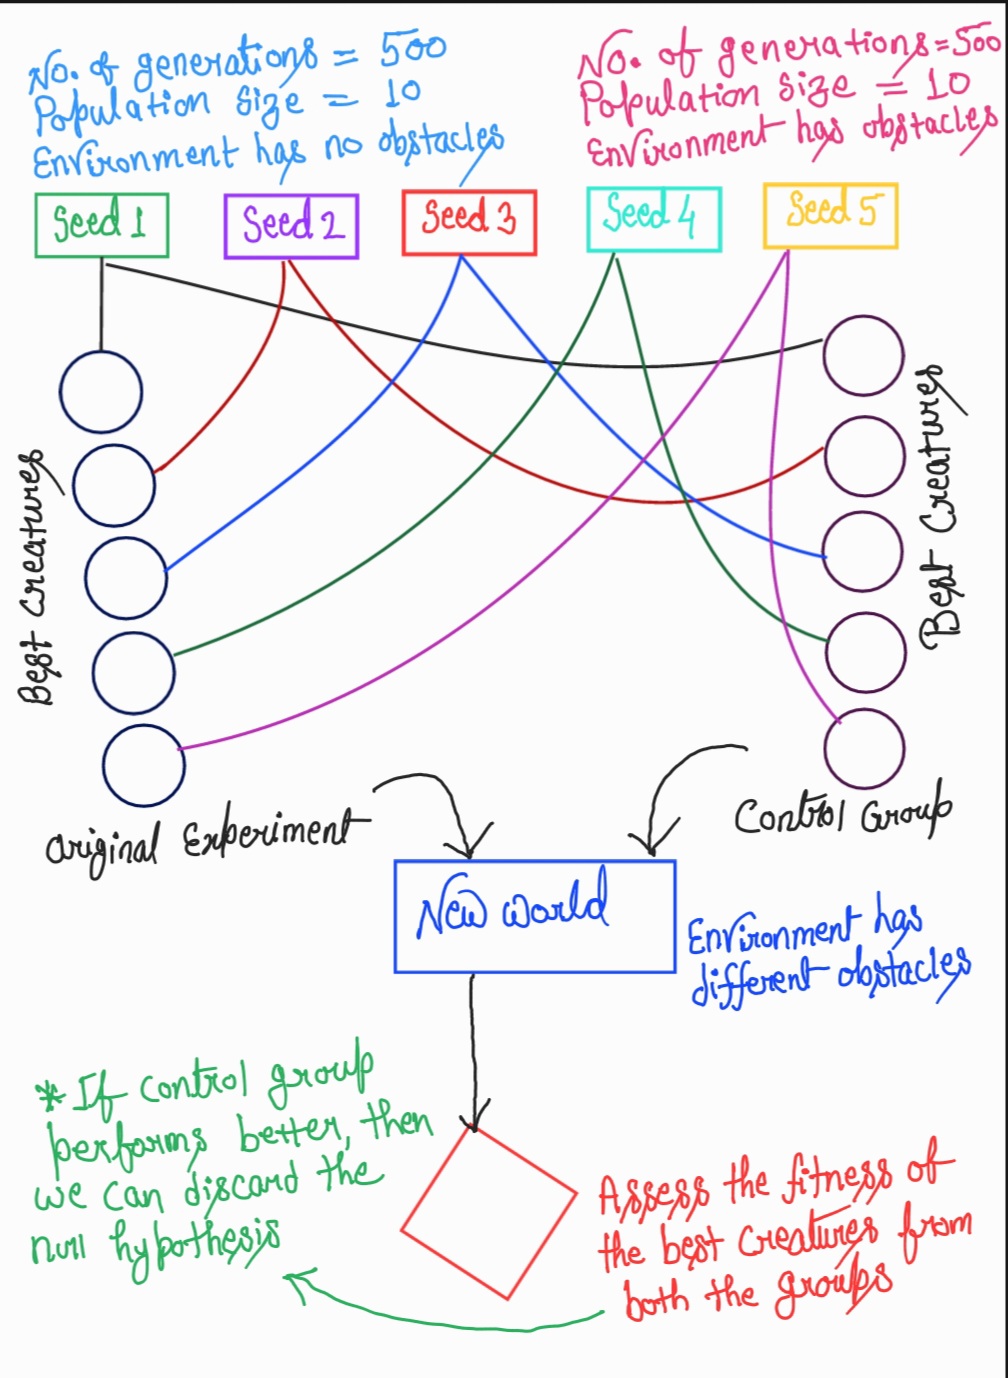 No. of generations = 500
Population size = 10
Environment has no obstacles
No. of generations = 500
Population size = 10
Environment has obstacles
Seed 1
Seed 2
Seed 3
Seed 4
Seed 5
Best Creatures
Best Creatures
Original Experiment
Control Group
New World
Environment has
different obstacles
* If control group
performs better, then
we can discard the
null hypothesis
Assess the fitness of
the best creatures from
both the groups